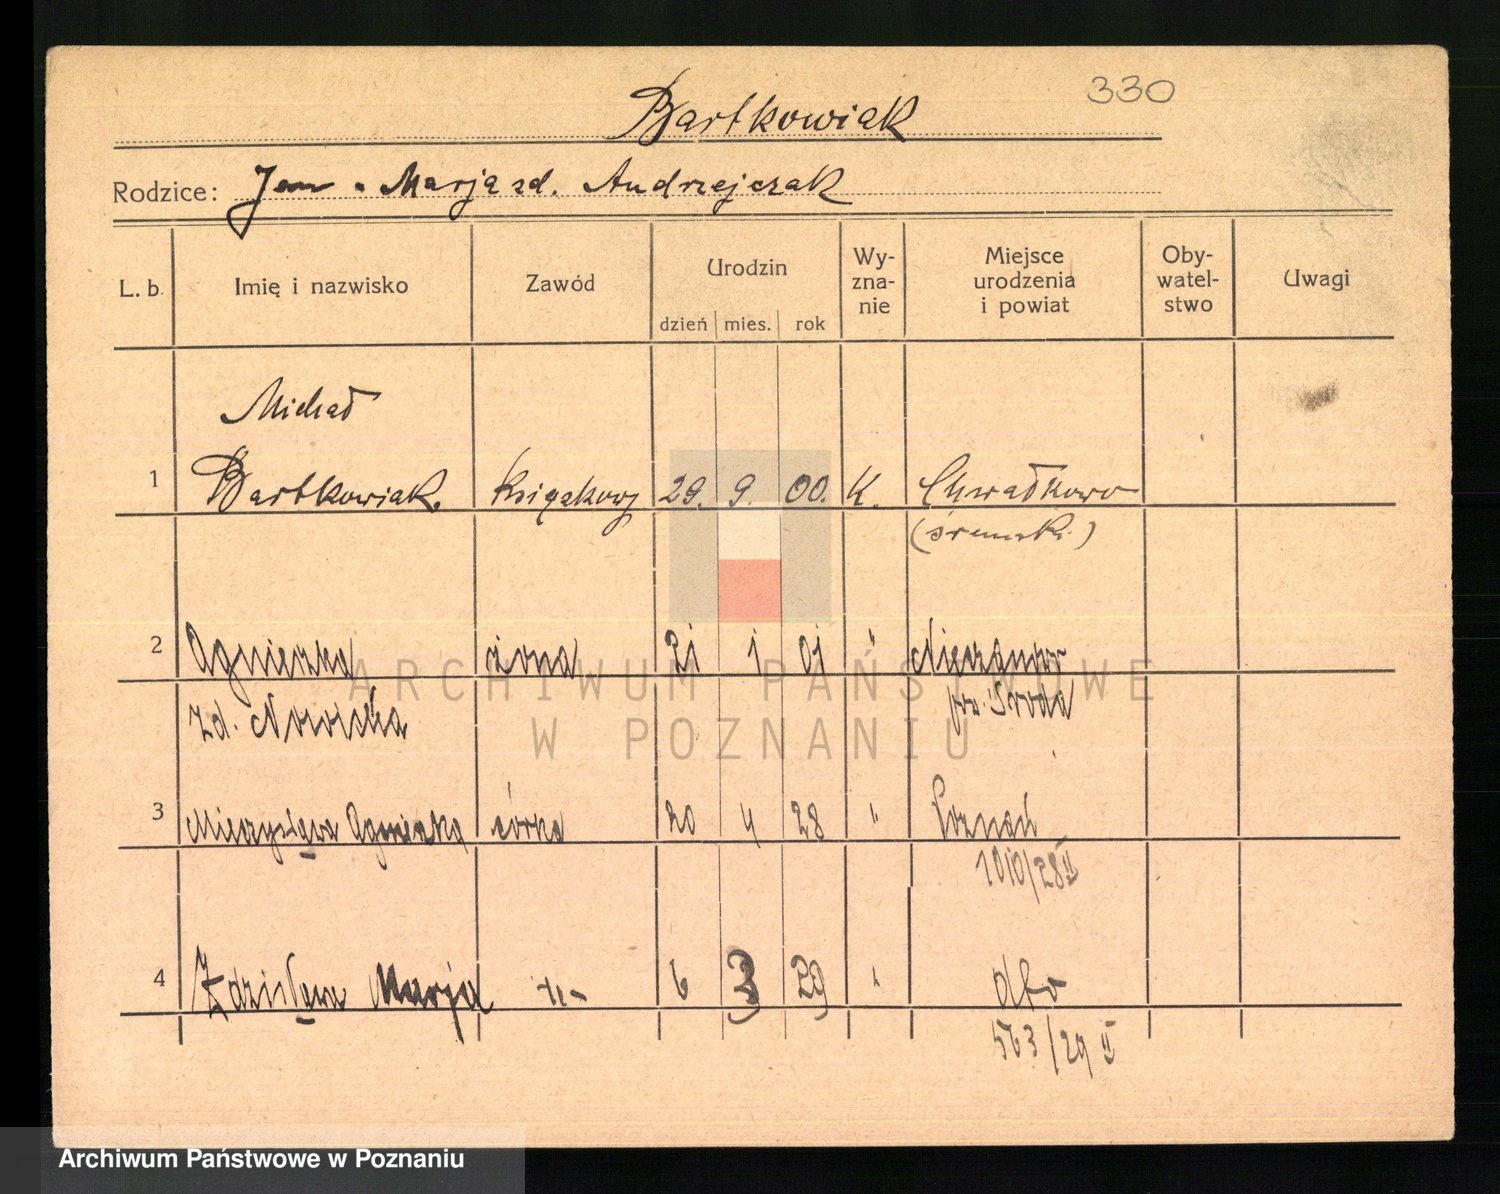 330
Bartkowiak
Rodzice: Jan - Marja zd. Andrzejczak
L. b. Imię i nazwisko Zawód Urodzin Wy-zna-nie Miejsce urodzenia i powiat Oby-watel-stwo Uwagi
dzień mies. rok
Michał
1 Bartkowiak. Książkowy 29. 9. 00. K. Chwałkowo
(śremski)
2 Agnieszka żona 21 1 01 " 
zd. Nowicka pow. Środa
3 Mieczysława Agnieszka córka 20 4 28 " Poznań
1010/28 II
4 Zdzisława Marja -"- 6 3 29 " dto
563/29 II
ARCHIWUM PAŃSTWOWE
W POZNANIU
Archiwum Państwowe w Poznaniu